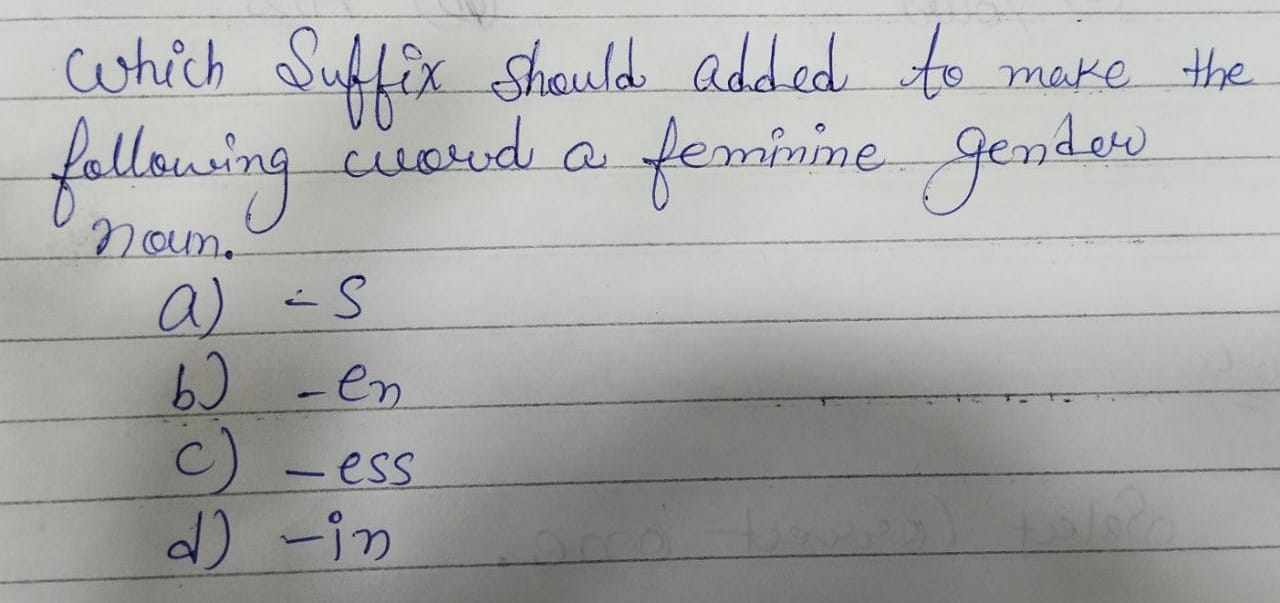 Which Suffix Should added to make the
following word a feminine gender
noun.
a) -s
b) -en
c) -ess
d) -in